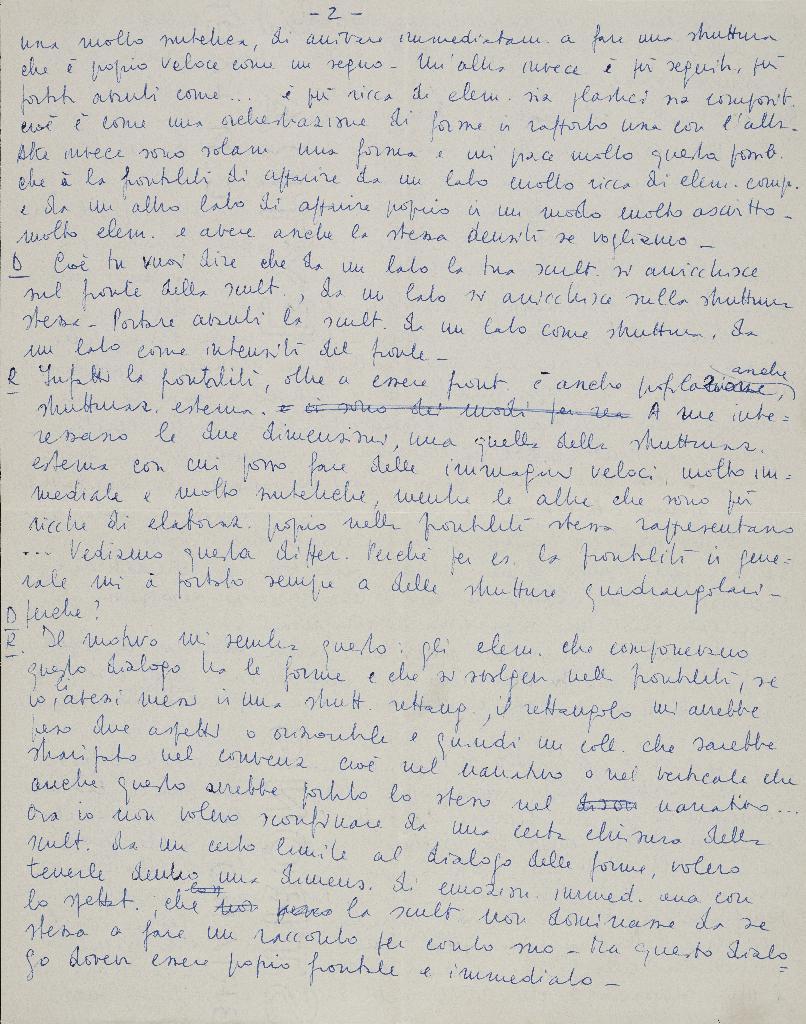 - 2 -
una molto sintetica, di arrivare immediatam. a fare una struttura
che è propio veloce come un segno - Un'altra invece è più seguita, più
portata avanti come... è più ricca di elem. sia plastici sia composit.
cioè è come una orchestrazione di forme in rapporto una con l'altra.
Altre invece sono solam. una forma e mi piace molto questa possib.
che à la frontalità di apparire da un lato molto ricca di elem. comp.
e da un altro lato di apparire propio in un modo molto asciutto -
molto elem. e avere anche la stessa densità se vogliamo -
D Cioè tu vuoi dire che da un lato la tua scult. si arricchisce
sul fronte della scult., da un lato si arricchisce sulla struttura
stessa - Portare avanti la scult. da un lato come struttura, da
un lato come intensità del fronte -
anche
R Infatti la frontalità, oltre a essere front. è anche
strutturaz. esterna. e ci sono dei modi per A me inte-
ressano le due dimensioni, una quella della strutturaz.
esterna con cui posso fare delle immagini veloci, molto im-
mediate e molto sintetiche, mentre le altre che sono più
ricche di elaboraz. propio nella frontalità stessa rappresentano
... Vediamo questa differ. Perché per es. la frontalità in gene-
rale mi à portato sempre a delle strutture quadrangolari -
D perche?
R. Il motivo mi sembra questo: gli elem. che componevano
questo dialogo tra le forme e che si svolgeva nella frontalità, se
io li avessi messi in una strutt. rettang., il rettangolo mi avrebbe
preso due aspetti o orizzontale e quindi un coll. che sarebbe
straripato nel convenz. cioè nel narrativo o nel verticale che
anche questo avrebbe portato lo stesso nel narrativo...
Ora io non volevo sconfinare da una certa chiusura della
scult. da un certo limite al dialogo delle forme, volevo
tenerle dentro una dimens. di emozion. immed. una con
lo spettat., che la scult non dominasse da se
stessa a fare un racconto per conto suo - Ma questo dialo-
go doveva essere propio frontale e immediato -